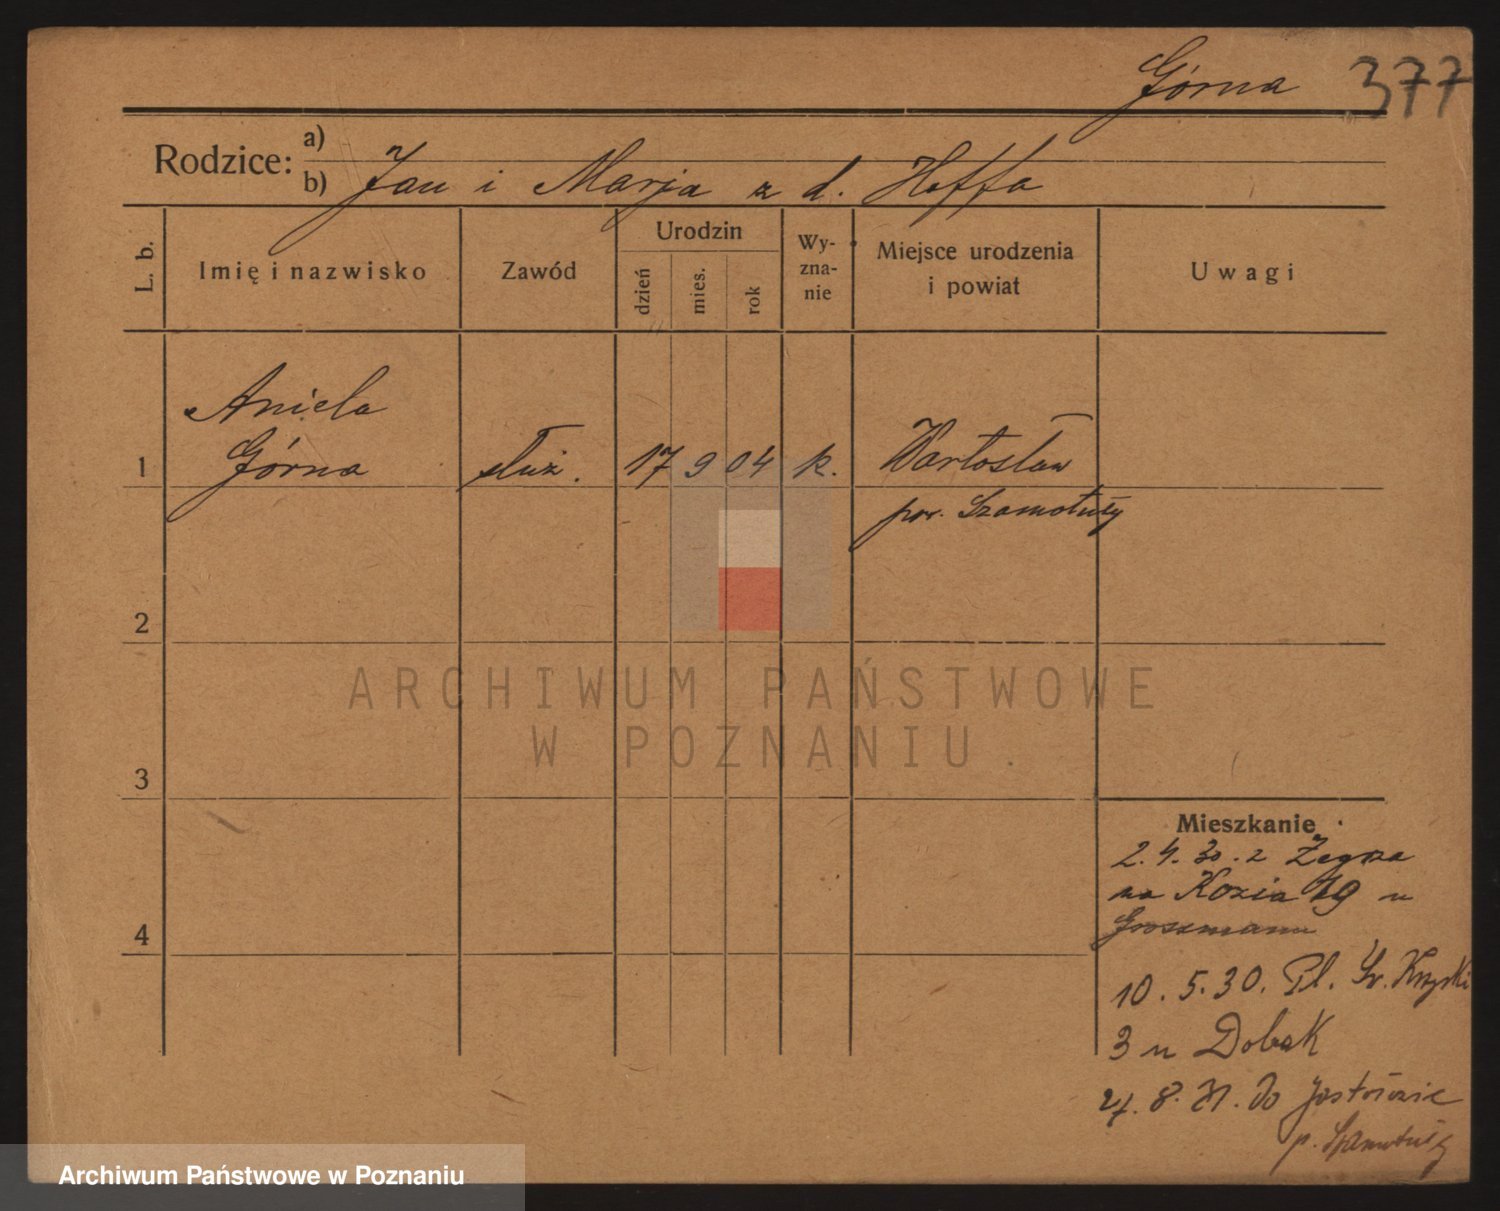 Górna 377
Rodzice: a)
b) Jan i Marja z d. Hoffa
L. b.
Imię i nazwisko
Zawód
Urodzin
dzień
mies.
rok
Wy-
zna-
nie
Miejsce urodzenia
i powiat
Uwagi
Aniela
1 Górna służ. 17 9 04 k. Wartosław
pow. Szamotuły
2
3
4
ARCHIWUM PAŃSTWOWE
W POZNANIU
Mieszkanie
2.4.30. z
na Kozia 19 u
Grossmann
10.5.30. Pl. Św. Krzyski
3 u Dobak
8. 31. do
p. Szamotuły
Archiwum Państwowe w Poznaniu